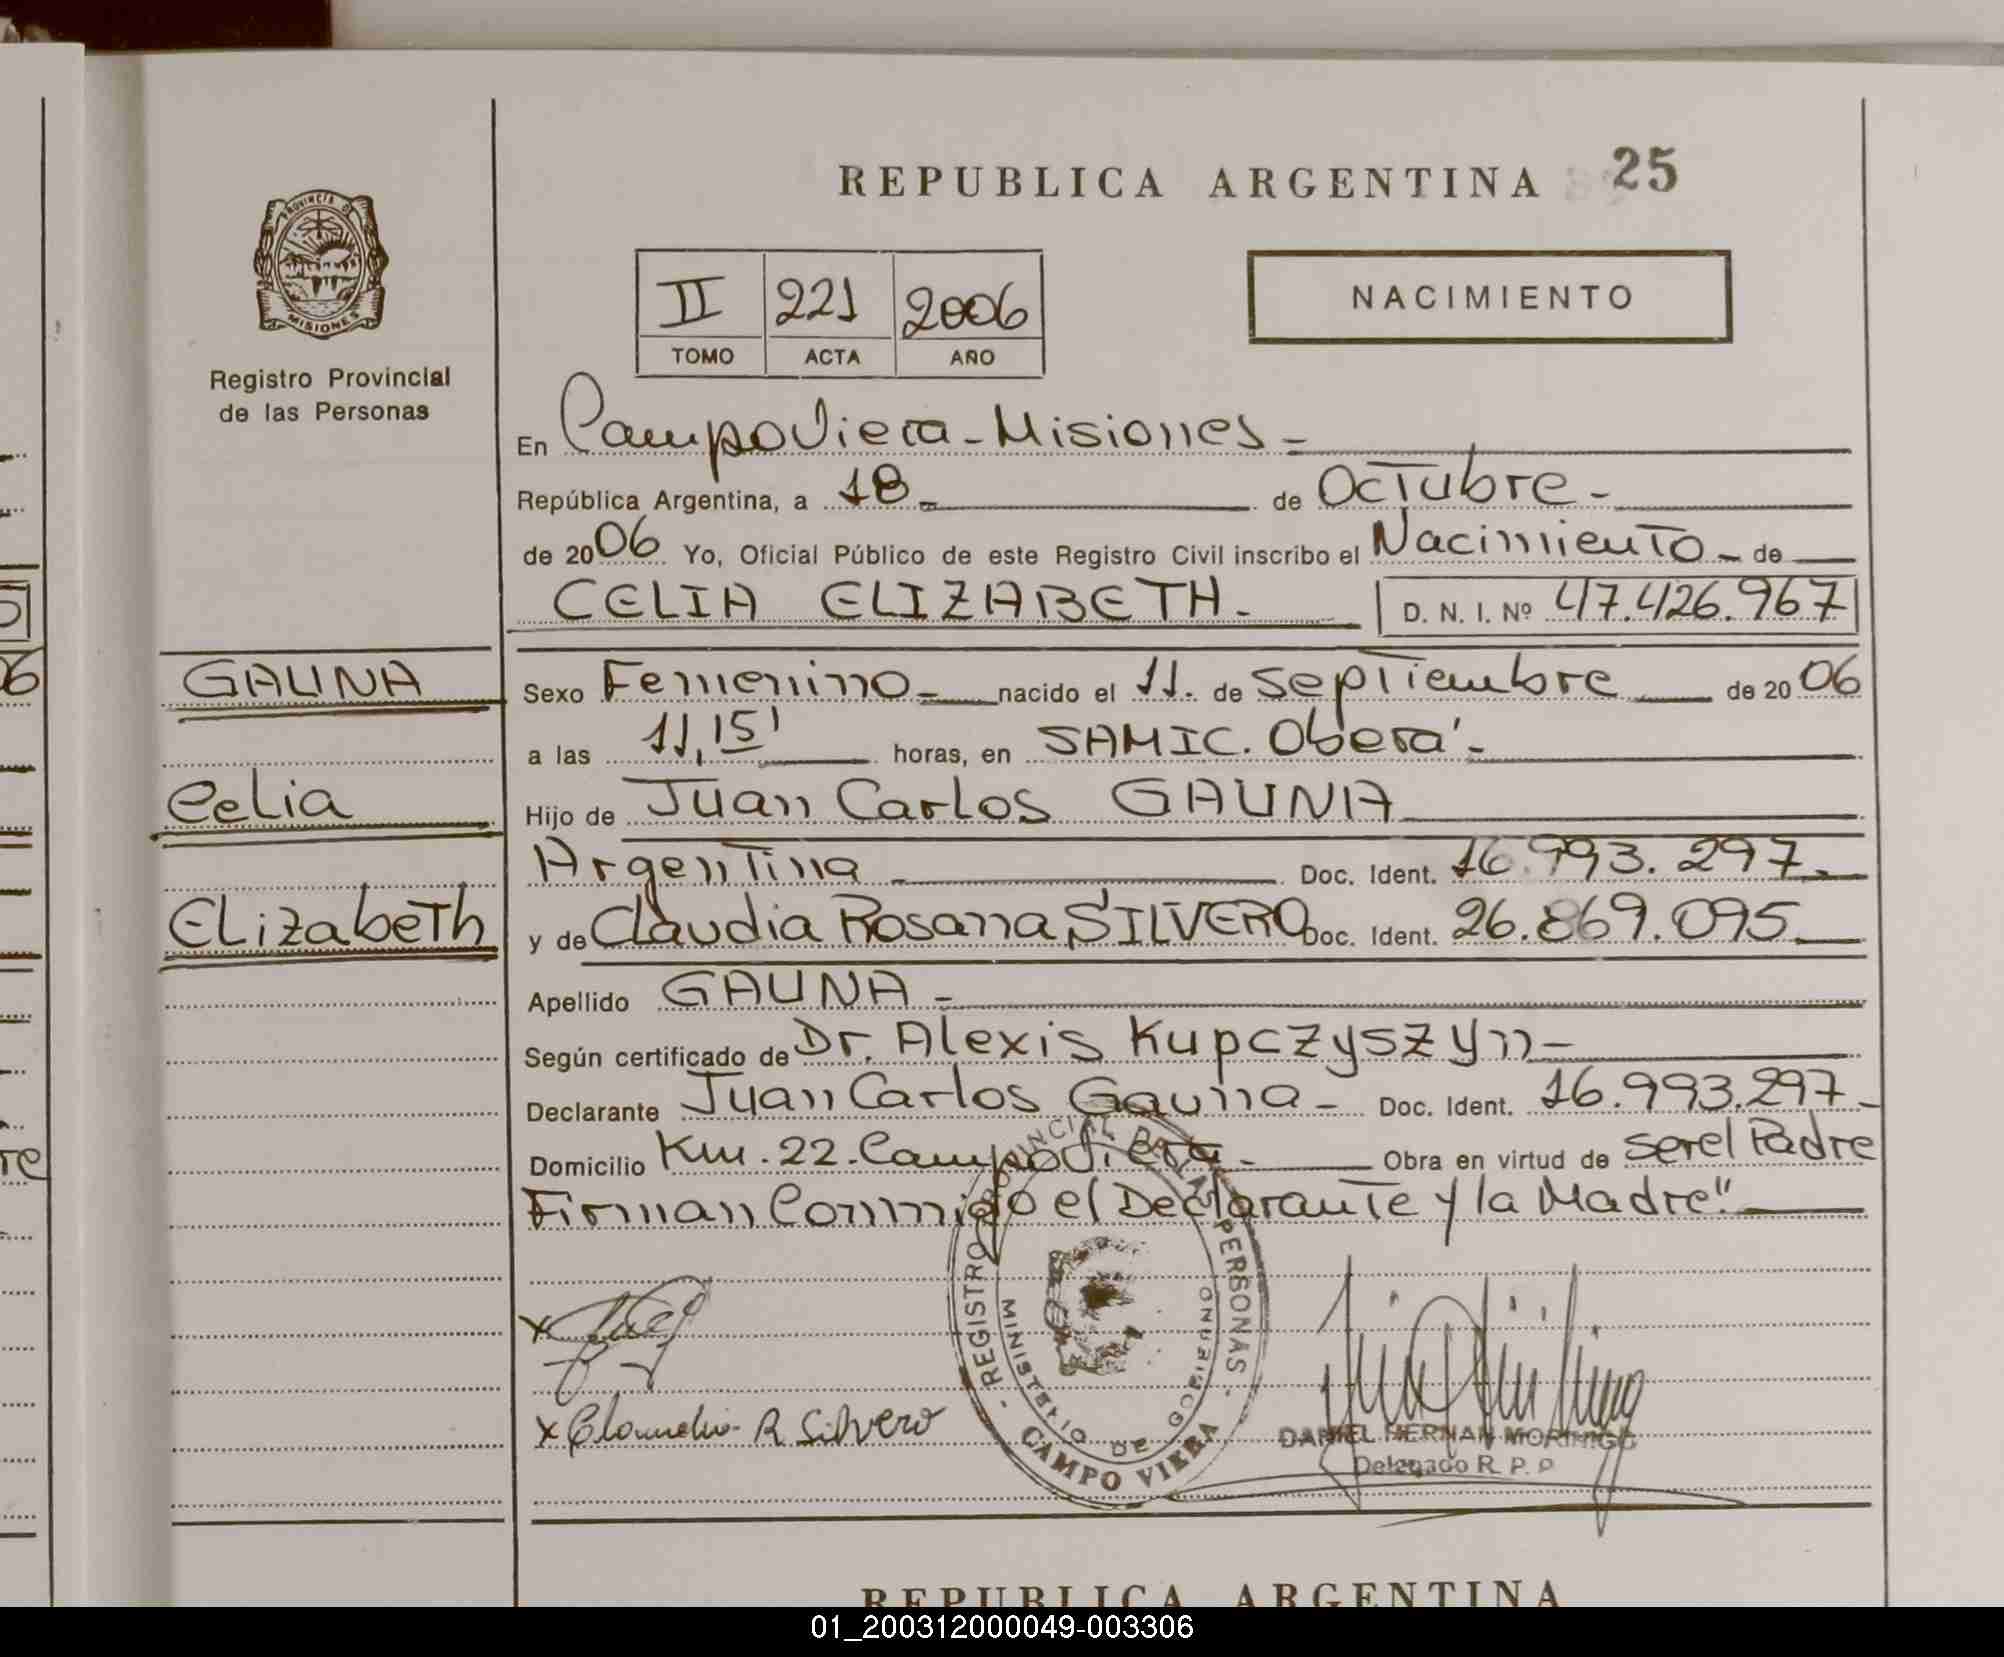 REPUBLICA ARGENTINA 25
PROVINCIA DE
MISIONES
Registro Provincial
de las Personas
II 221 2006
TOMO ACTA AÑO
NACIMIENTO
En Campo Viera - Misiones -
República Argentina, a 18 - de Octubre -
de 2006 Yo, Oficial Público de este Registro Civil inscribo el Nacimiento - de
CELIA ELIZABETH - D. N. I. Nº 47.426.967
GAUNA
Sexo Femenino - nacido el 11. de septiembre de 2006
a las 11,15' horas, en SAMIC. Oberá -
Celia
Hijo de Juan Carlos GAUNA
Argentina Doc. Ident. 16.993.297 -
Elizabeth
y de Claudia Rosana SILVERO Doc. Ident. 26.869.095
Apellido GAUNA -
Según certificado de Dr. Alexis Kupczyszyn -
Declarante Juan Carlos Gauna - Doc. Ident. 16.993.297 -
Domicilio Km. 22. Campo Viera - Obra en virtud de ser el Padre
Firman Conmigo el Declarante y la Madre"
REGISTRO PROVINCIAL DE LAS PERSONAS
MINISTERIO DE GOBIERNO
CAMPO VIERA
x
x Claudia R Silvero
DANIEL HERNAN MORINIGO
Delegado R. P. P
REPUBLICA ARGENTINA
01_200312000049-003306